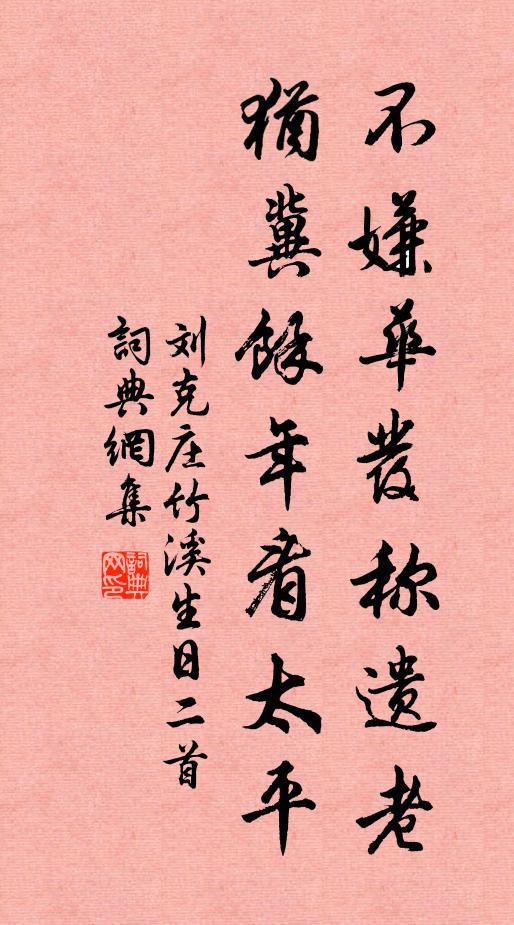 不嫌華发称遗老
猶冀餘年看太平
刘克庄竹溪生日二首
詞典網集
詞典網印